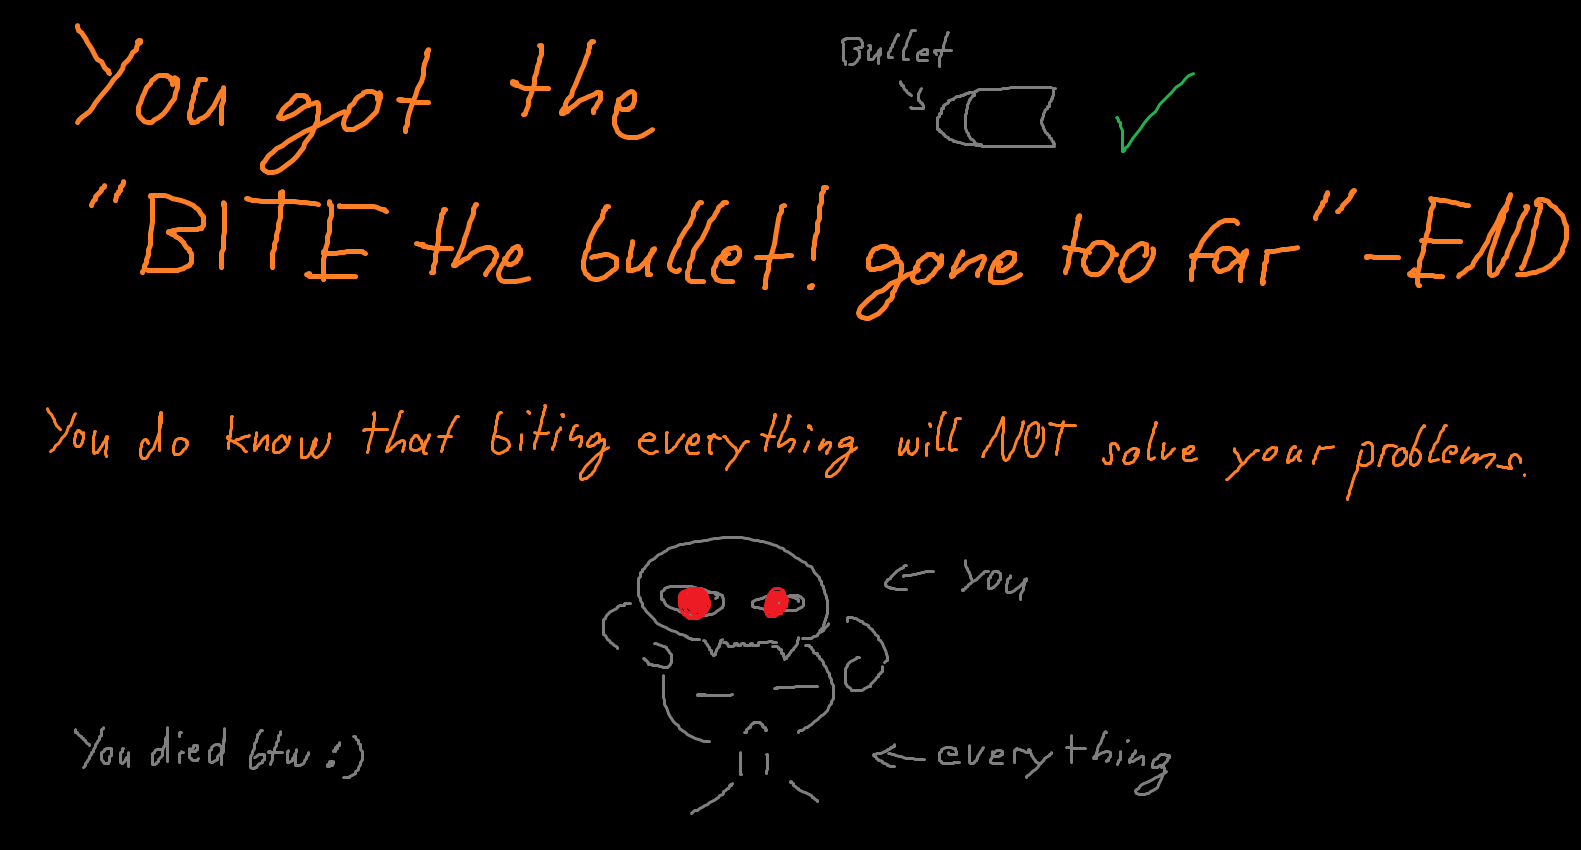 You got the
Bullet
"BITE the bullet! gone too far"-END
You do know that biting everything will NOT solve your problems.
You
You died btw :)
everything